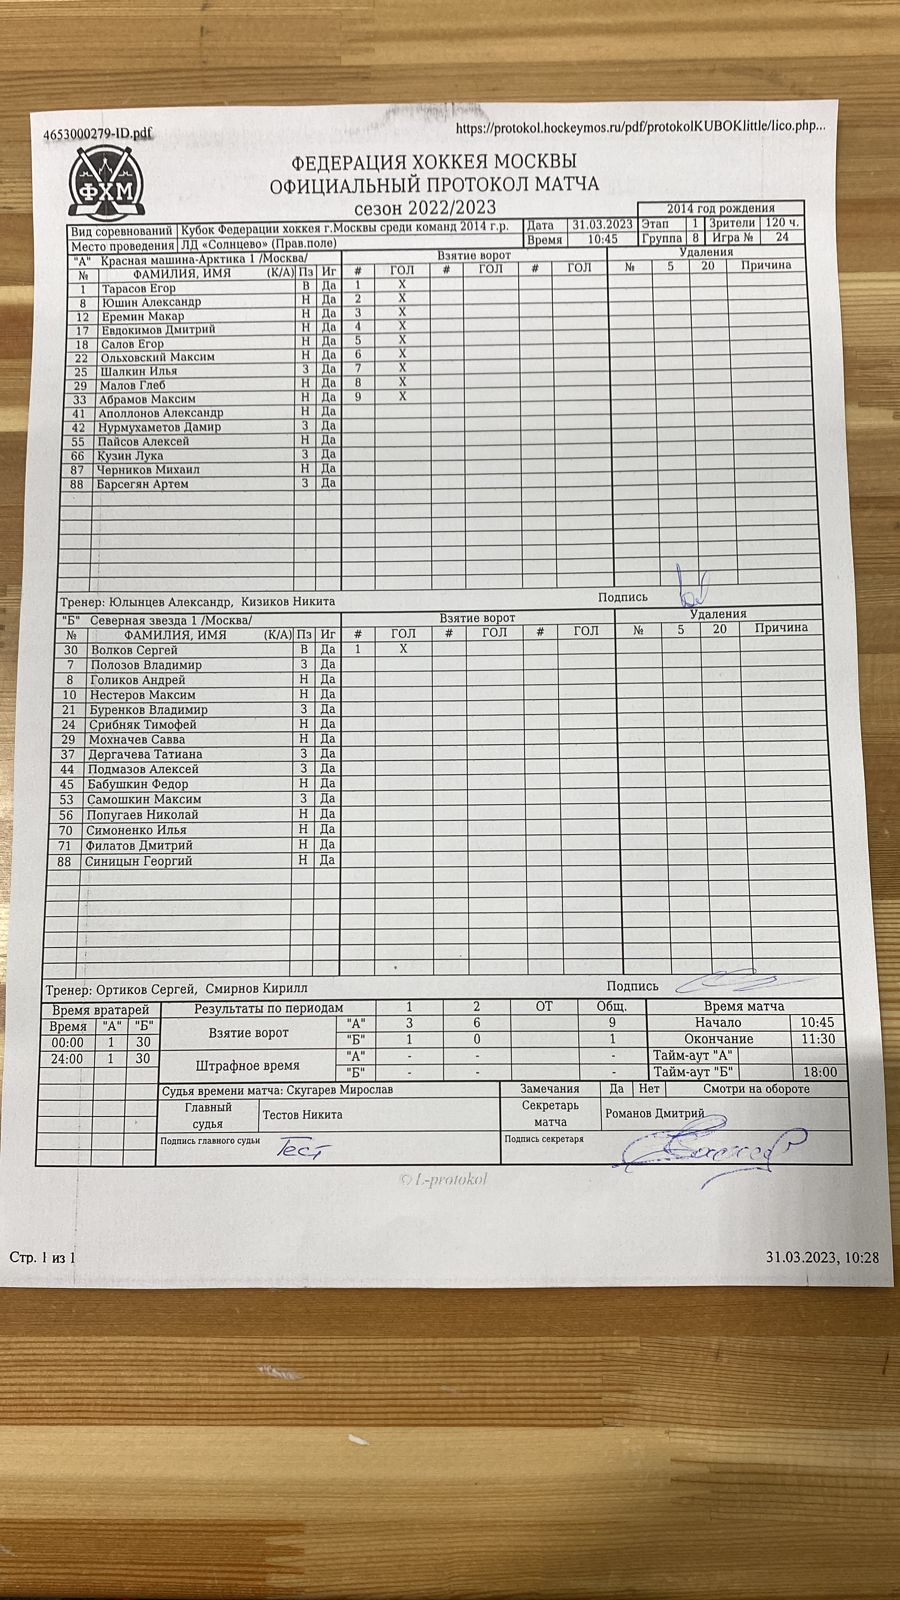 4653000279-ID.pdf https://protokol.hockeymos.ru/pdf/protokolKUBOKlittle/lico.php...
ФХМ
ФЕДЕРАЦИЯ ХОККЕЯ МОСКВЫ
ОФИЦИАЛЬНЫЙ ПРОТОКОЛ МАТЧА
сезон 2022/2023
2014 год рождения
Вид соревнований Кубок Федерации хоккея г.Москвы среди команд 2014 г.р. Дата 31.03.2023 Этап 1 Зрители 120 ч.
Место проведения ЛД «Солнцево» (Прав.поле) Время 10:45 Группа 8 Игра № 24
"А" Красная машина-Арктика 1 /Москва/ Взятие ворот Удаления
№ ФАМИЛИЯ, ИМЯ (К/А) Пз Иг # ГОЛ # ГОЛ # ГОЛ № 5 20 Причина
1 Тарасов Егор В Да 1 X
8 Юшин Александр Н Да 2 X
12 Еремин Макар Н Да 3 X
17 Евдокимов Дмитрий Н Да 4 X
18 Салов Егор Н Да 5 X
22 Ольховский Максим Н Да 6 X
25 Шалкин Илья З Да 7 X
29 Малов Глеб Н Да 8 X
33 Абрамов Максим Н Да 9 X
41 Аполлонов Александр Н Да
42 Нурмухаметов Дамир З Да
55 Пайсов Алексей Н Да
66 Кузин Лука З Да
87 Черников Михаил Н Да
88 Барсегян Артем З Да
Тренер: Юлынцев Александр, Кизиков Никита Подпись
"Б" Северная звезда 1 /Москва/ Взятие ворот Удаления
№ ФАМИЛИЯ, ИМЯ (К/А) Пз Иг # ГОЛ # ГОЛ # ГОЛ № 5 20 Причина
30 Волков Сергей В Да 1 X
7 Полозов Владимир З Да
8 Голиков Андрей Н Да
10 Нестеров Максим Н Да
21 Буренков Владимир З Да
24 Срибняк Тимофей Н Да
29 Мохначев Савва Н Да
37 Дергачева Татиана З Да
44 Подмазов Алексей З Да
45 Бабушкин Федор Н Да
53 Самошкин Максим З Да
56 Попугаев Николай Н Да
70 Симоненко Илья Н Да
71 Филатов Дмитрий Н Да
88 Синицын Георгий Н Да
Тренер: Ортиков Сергей, Смирнов Кирилл Подпись
Время вратарей Результаты по периодам 1 2 ОТ Общ. Время матча
Время "А" "Б" Взятие ворот "А" 3 6 9 Начало 10:45
00:00 1 30 "Б" 1 0 1 Окончание 11:30
24:00 1 30 Штрафное время "А" - - - Тайм-аут "А"
"Б" - - - Тайм-аут "Б" 18:00
Судья времени матча: Скугарев Мирослав Замечания Да Нет Смотри на обороте
Главный судья Тестов Никита Секретарь матча Романов Дмитрий
Подпись главного судьи Тест Подпись секретаря
© L-protokol
Стр. 1 из 1 31.03.2023, 10:28